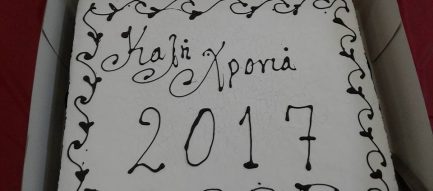 Καλή Χρονιά
2017